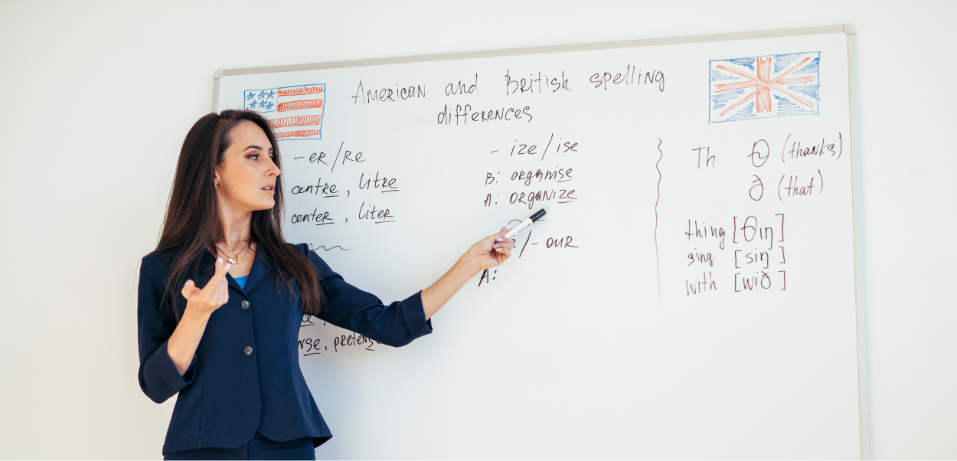 American and British spelling
differences
-er/re
centre, litre
center, liter
pretense
- ize/ise
B: organise
A: organize
/-our
A:
Th Θ (thanks)
ð (that)
thing [θiŋ]
sing [siŋ]
with [wið]